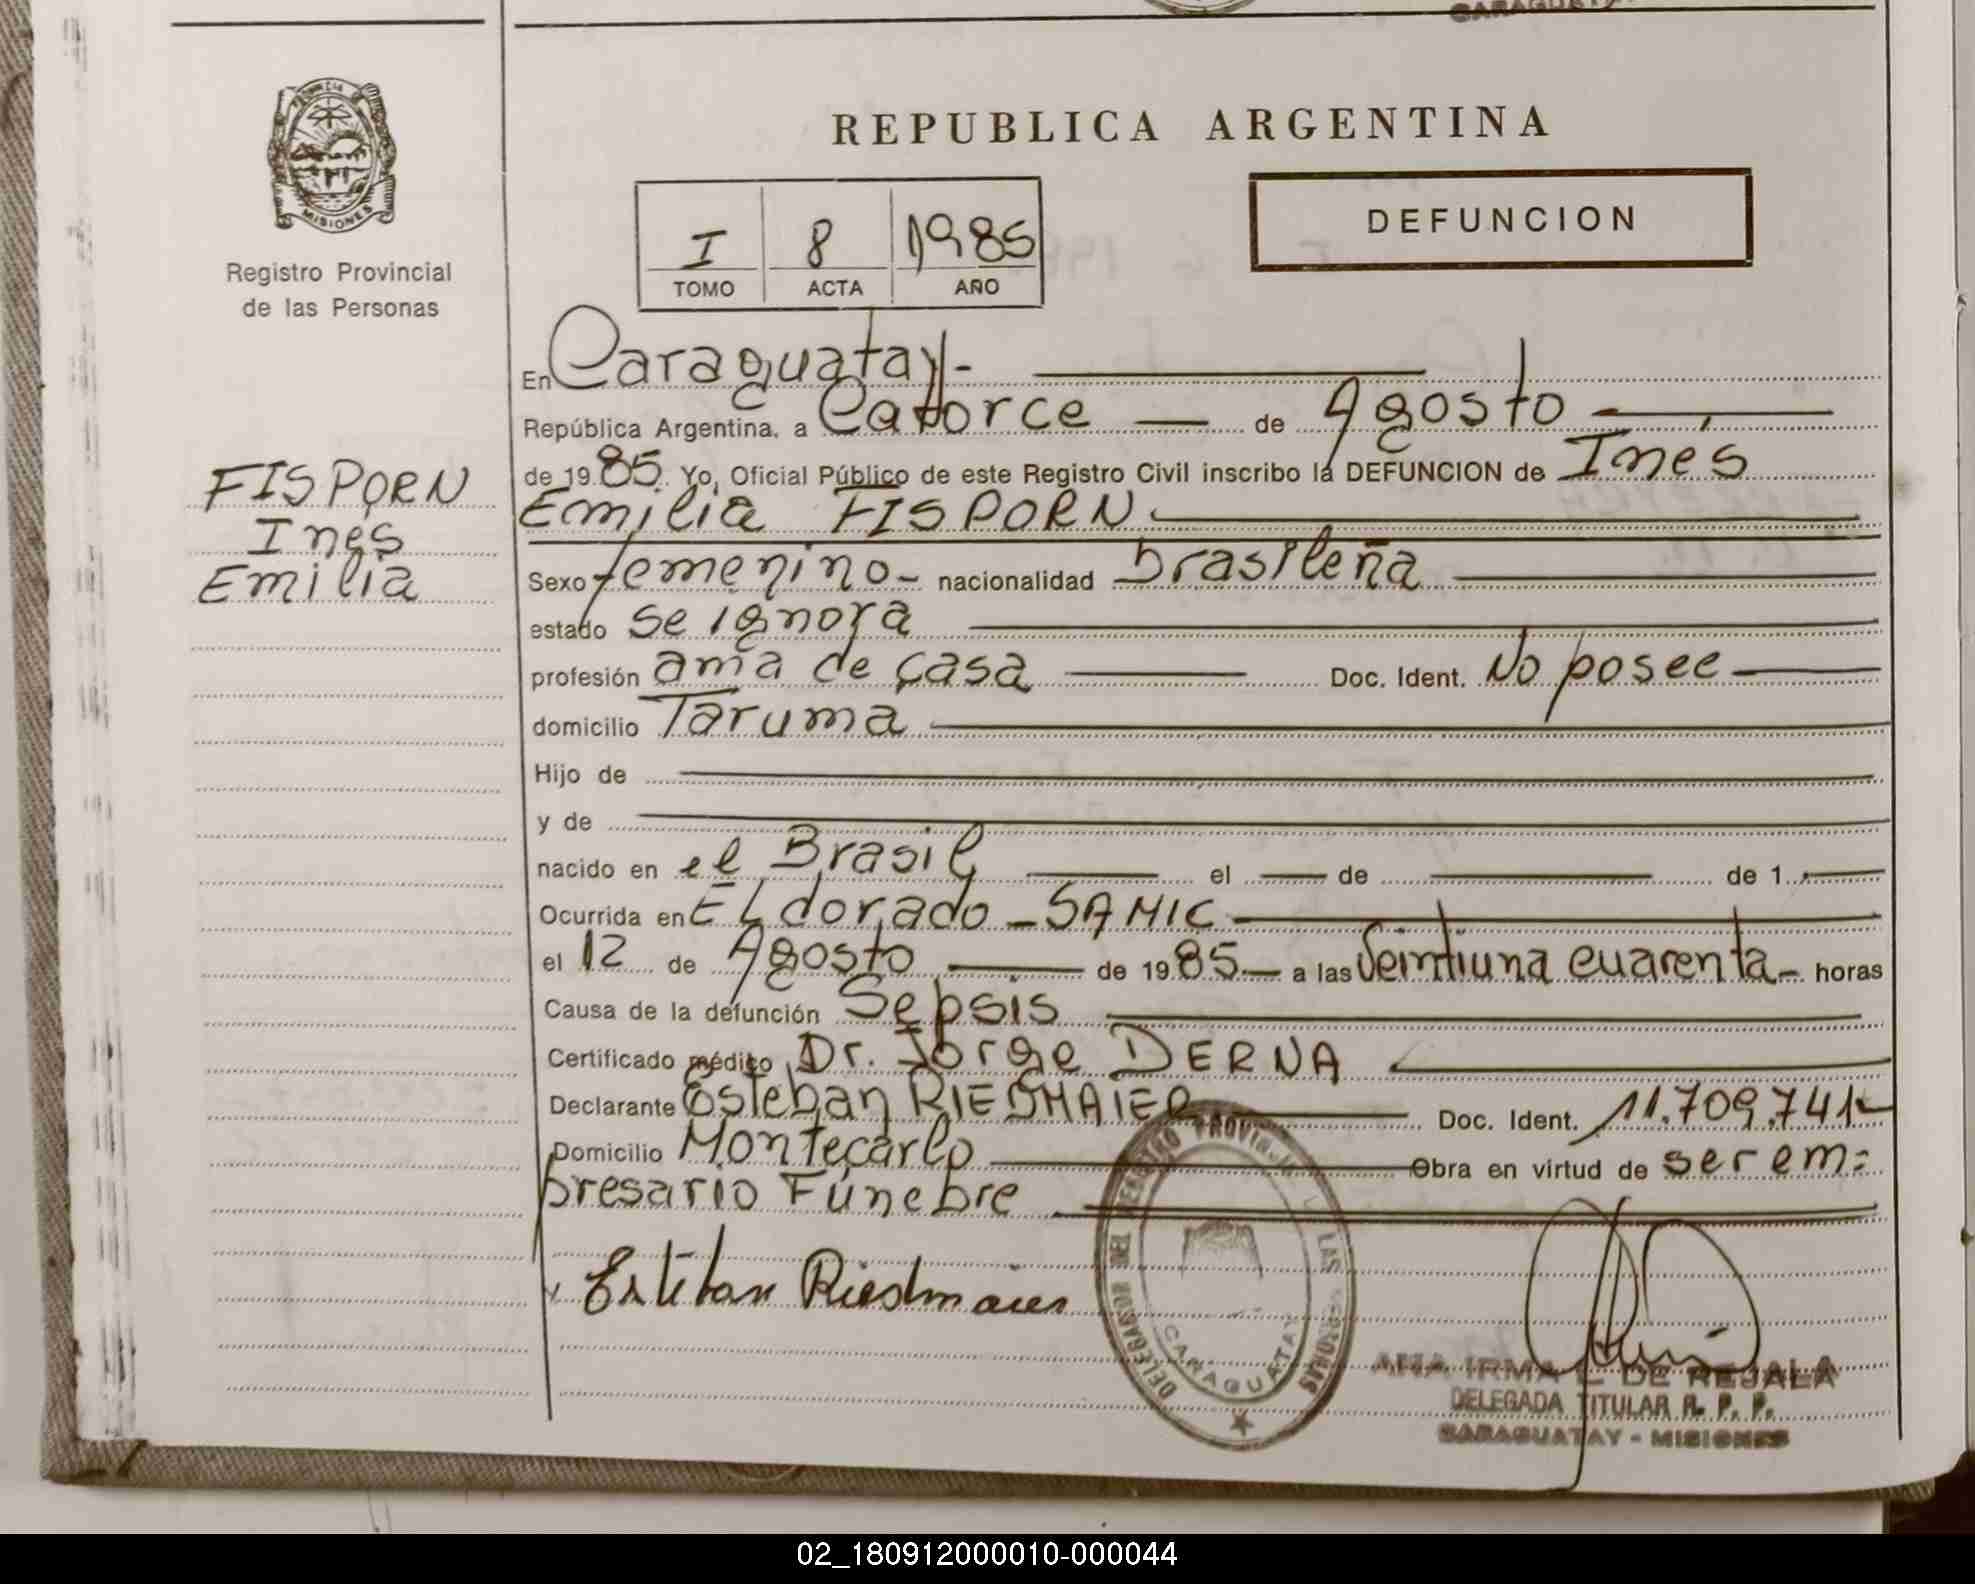 CARAGUATAY
PROVINCIA DE
MISIONES
Registro Provincial
de las Personas
REPUBLICA ARGENTINA
DEFUNCION
I 8 1985
TOMO ACTA AÑO
En Caraguatay -
República Argentina, a Catorce de Agosto
de 1985. Yo, Oficial Público de este Registro Civil inscribo la DEFUNCION de Inés
Emilia FISPORN
FISPORN
Inés
Emilia
Sexo femenino - nacionalidad brasileña
estado se ignora
profesión ama de casa Doc. Ident. No posee
domicilio Taruma
Hijo de
y de
nacido en el Brasil el de de 1
Ocurrida en ELdorado - SAMIC
el 12 de Agosto de 1985 a las Veintiuna cuarenta - horas
Causa de la defunción Sepsis
Certificado médico Dr. Jorge DERNA
Declarante Esteban RIEDMAIER Doc. Ident. 11.709.741
Domicilio Montecarlo Obra en virtud de ser em=
presario Fúnebre
Esteban Riedmaier
DELEGACION DEL REGISTRO PROVINCIAL DE LAS PERSONAS
CARAGUATAY
ANA IRMA C DE REJALA
DELEGADA TITULAR R. P. P.
CARAGUATAY - MISIONES
02_180912000010-000044